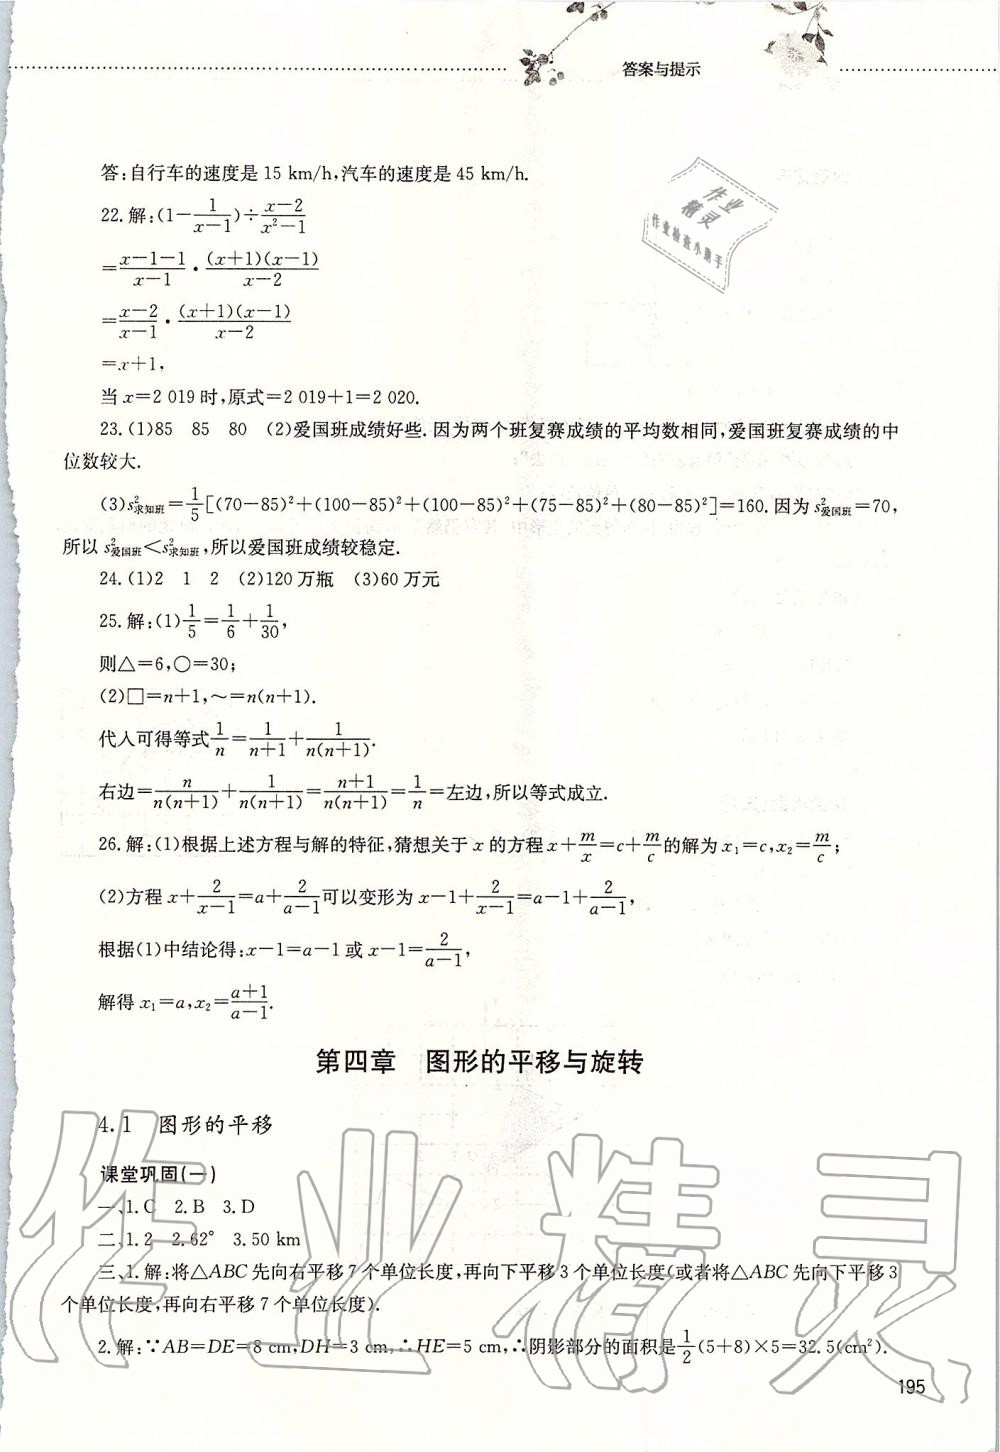 答案与提示
作业
精灵
作业检查小助手
答:自行车的速度是 15 km/h,汽车的速度是 45 km/h.
22.解:(1-1/(x-1))÷(x-2)/(x²-1)
=(x-1-1)/(x-1)·((x+1)(x-1))/(x-2)
=(x-2)/(x-1)·((x+1)(x-1))/(x-2)
=x+1,
当 x=2 019 时,原式=2 019+1=2 020.
23.(1)85 85 80 (2)爱国班成绩好些.因为两个班复赛成绩的平均数相同,爱国班复赛成绩的中
位数较大.
(3)s²求知班=1/5[(70-85)²+(100-85)²+(100-85)²+(75-85)²+(80-85)²]=160.因为 s²爱国班=70,
所以 s²爱国班<s²求知班,所以爱国班成绩较稳定.
24.(1)2 1 2 (2)120 万瓶 (3)60 万元
25.解:(1)1/5=1/6+1/30,
则△=6,○=30;
(2)□=n+1,~=n(n+1).
代入可得等式1/n=1/(n+1)+1/(n(n+1)).
右边=n/(n(n+1))+1/(n(n+1))=(n+1)/(n(n+1))=1/n=左边,所以等式成立.
26.解:(1)根据上述方程与解的特征,猜想关于 x 的方程 x+m/x=c+m/c的解为 x₁=c,x₂=m/c;
(2)方程 x+2/(x-1)=a+2/(a-1)可以变形为 x-1+2/(x-1)=a-1+2/(a-1),
根据(1)中结论得:x-1=a-1 或 x-1=2/(a-1),
解得 x₁=a,x₂=(a+1)/(a-1).
第四章 图形的平移与旋转
4.1 图形的平移
课堂巩固(一)
一、1.C 2.B 3.D
二、1.2 2.62° 3.50 km
三、1.解:将△ABC 先向右平移 7 个单位长度,再向下平移 3 个单位长度(或者将△ABC 先向下平移 3
个单位长度,再向右平移 7 个单位长度).
2.解:∵AB=DE=8 cm,DH=3 cm,∴HE=5 cm,∴阴影部分的面积是1/2(5+8)×5=32.5(cm²).
195
作业精灵